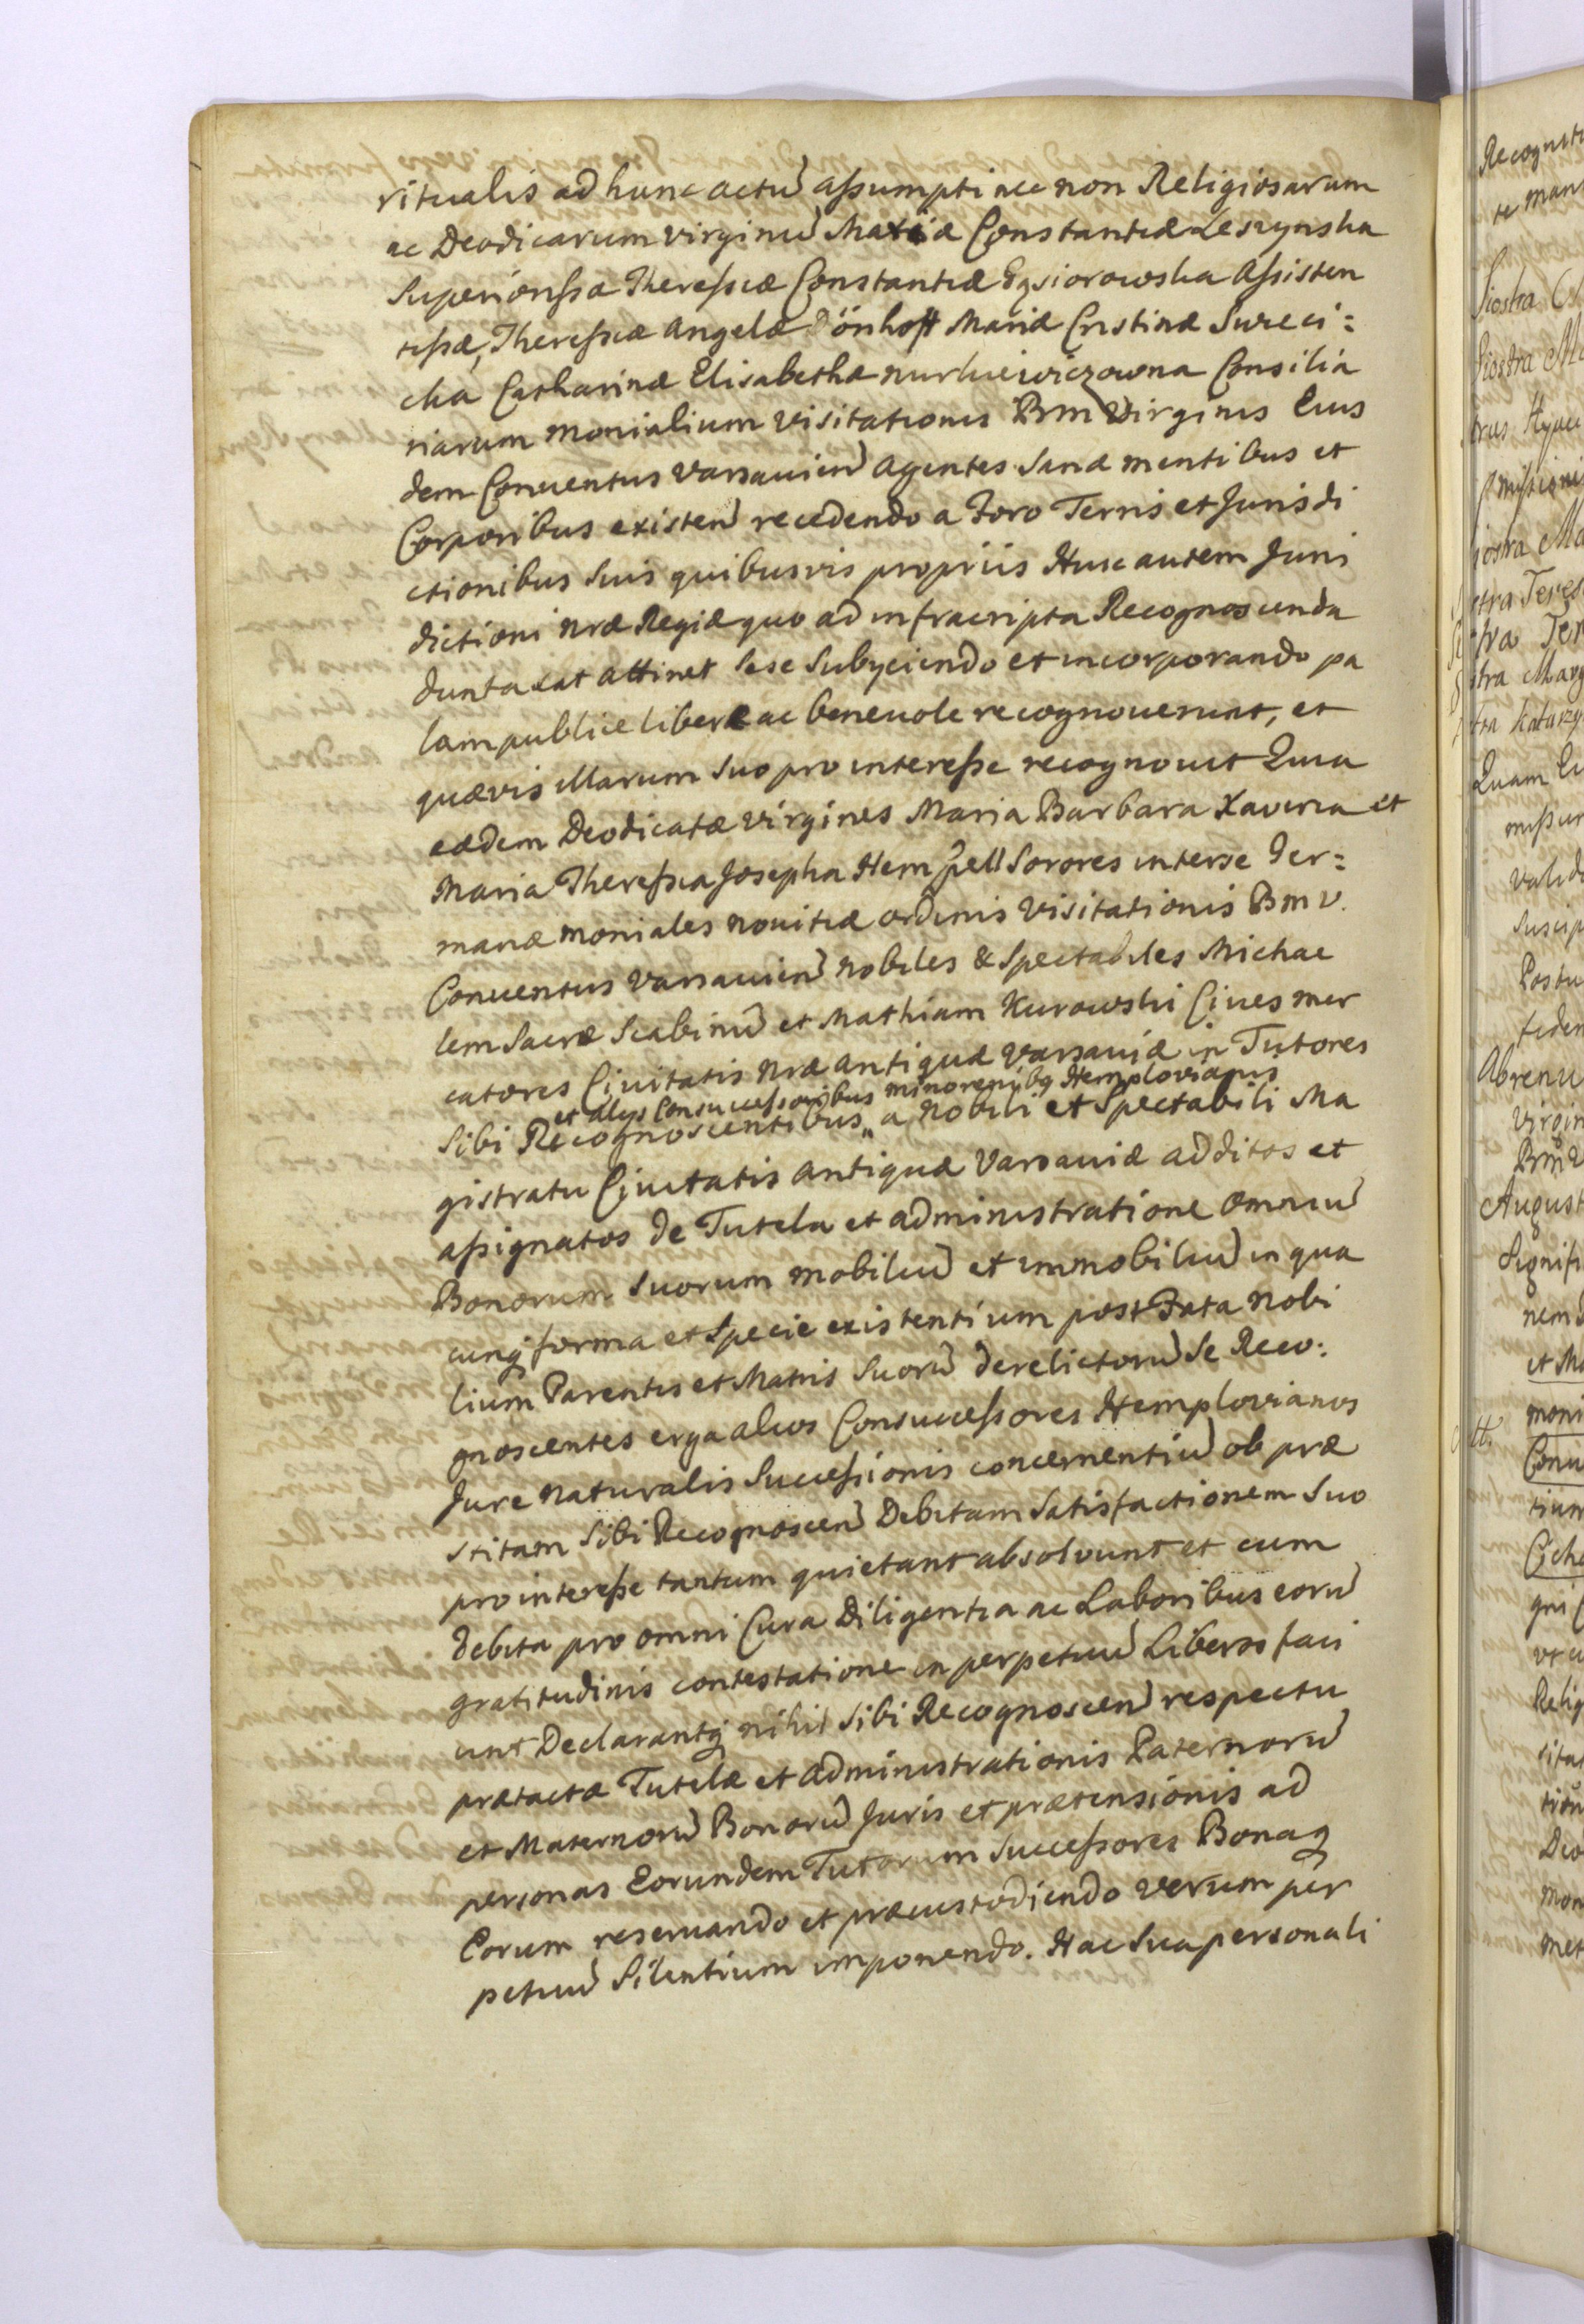 ritualis ad hunc actũ assumpti nec non Religiosarum
ac Deodicarum virginũ Maria Constantiæ Leszynska
Superiorissa Theressiæ Constantiæ Gąsiorowska Assisten
tissæ, Theressiæ Angelæ Dönhoff Mariæ Cristinæ Sureci=
cka Catharinæ Elisabethæ nurkiewiczowna Consilia
riarum monialium visitationis BM Virginis Eius
dem Conuentus Varsauien̄ agentes Sanæ mentibus et
Corporibus existen̄ recedendo a Foro Terris et Jurisdi
ctionibus suis quibusvis propriis Huic autem Juris
dictioni nræ Regiæ quo ad infracripta Recognoscenda
duntaxat attinet sese Subyciendo et incorporando pa
lam publice libere ac beneuole recognouerunt, et
quævis illarum suo pro interesse recognouit Quia
eædem Deodicatæ virgines Maria Barbara Xaueria et
Maria Theressia Josepha Hempell Sorores interse Ger=
manæ moniales nouitiæ ordinis Visitationis BMV.
Conuentus Varsauien̄ Nobiles & Spectabiles Michae
lem Sacre Scabinũ et Mathiam Kurowski Ciues mer
catores Ciuitatis nræ antiquæ Varsauiæ in Tutores
et alys Consuccessoribus minorenibq Hemplovianis
Sibi Recognoscentibus " a Nobili et Spectabili Ma
gistratu Ciuitatis antiquæ Varsauiæ additos et
assignatos de Tutela et administratione omniũ
Bonorum suorum mobiliũ et immobiliũ in qua
cunq forma et Specie existentium post Fata Nobi
lium Parentis et Matris Suorũ derelictorũ se Reco:
gnoscentes erga alios Consuccessores Hemplovianos
Jure naturalis Successionis concernentiũ ob præ
stitam sibi Recognoscen̄ Debitam Satisfactionem suo
pro interesse tantum quietant absoluunt et cum
debita pro omni Cura Diligentia ac Laboribus eorũ
gratitudinis contestatione in perpetuũ Liberos faci
unt Declarantq nihil sibi Recognoscen̄ respectu
prætactæ Tutelæ et administrationis Paternorũ
et Maternorũ Bonorũ Juris et prætensionis ad
personas Eorundem Tutorum Successores Bonaq
Eorum reseruando et præcustodiendo verum per
petuũ Silentium imponendo. Hac sua personali